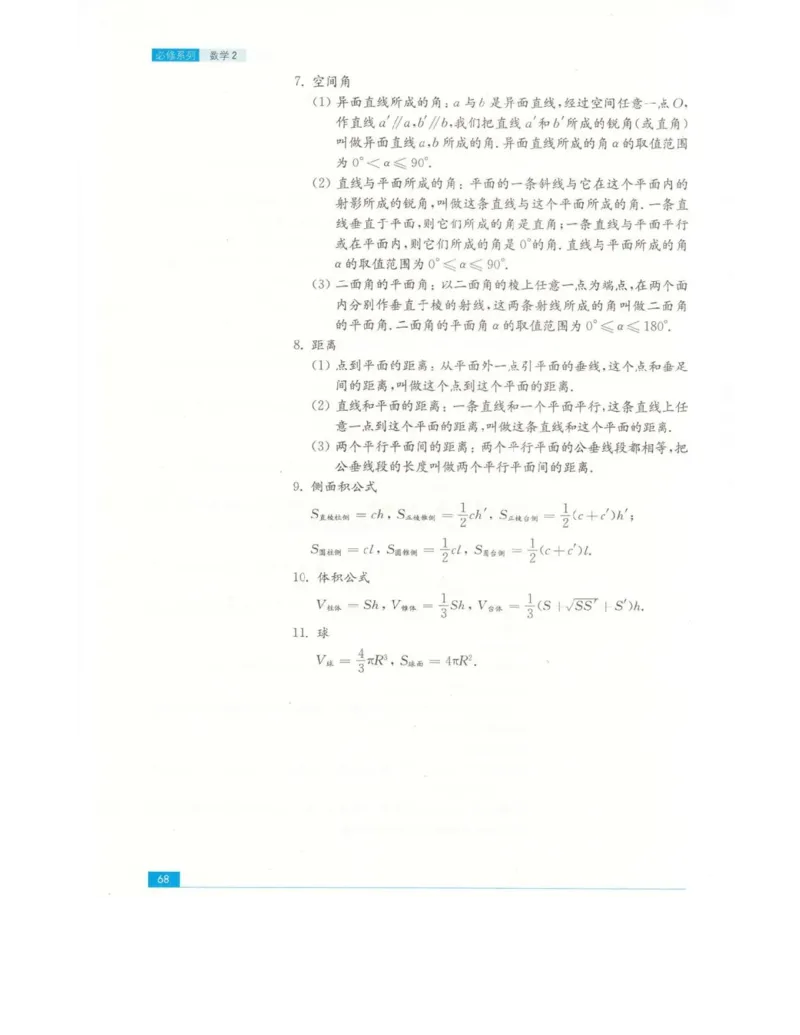 必修系列 数学2
7. 空间角
(1) 异面直线所成的角：a与b是异面直线,经过空间任意一点O,
作直线a′∥a,b′∥b,我们把直线a′和b′所成的锐角(或直角)
叫做异面直线a,b所成的角.异面直线所成的角α的取值范围
为0°＜α≤90°.
(2) 直线与平面所成的角：平面的一条斜线与它在这个平面内的
射影所成的锐角,叫做这条直线与这个平面所成的角.一条直
线垂直于平面,则它们所成的角是直角；一条直线与平面平行
或在平面内,则它们所成的角是0°的角.直线与平面所成的角
α的取值范围为0°≤α≤90°.
(3) 二面角的平面角：以二面角的棱上任意一点为端点,在两个面
内分别作垂直于棱的射线,这两条射线所成的角叫做二面角
的平面角.二面角的平面角α的取值范围为0°≤α≤180°.
8. 距离
(1) 点到平面的距离：从平面外一点引平面的垂线,这个点和垂足
间的距离,叫做这个点到这个平面的距离.
(2) 直线和平面的距离：一条直线和一个平面平行,这条直线上任
意一点到这个平面的距离,叫做这条直线和这个平面的距离.
(3) 两个平行平面间的距离：两个平行平面的公垂线段都相等,把
公垂线段的长度叫做两个平行平面间的距离.
9. 侧面积公式
S直棱柱侧 = ch, S正棱锥侧 = 1/2 ch′, S正棱台侧 = 1/2 (c+c′)h′;
S圆柱侧 = cl, S圆锥侧 = 1/2 cl, S圆台侧 = 1/2 (c+c′)l.
10. 体积公式
V柱体 = Sh, V锥体 = 1/3 Sh, V台体 = 1/3 (S+√SS′+S′)h.
11. 球
V球 = 4/3 πR³, S球面 = 4πR².
68